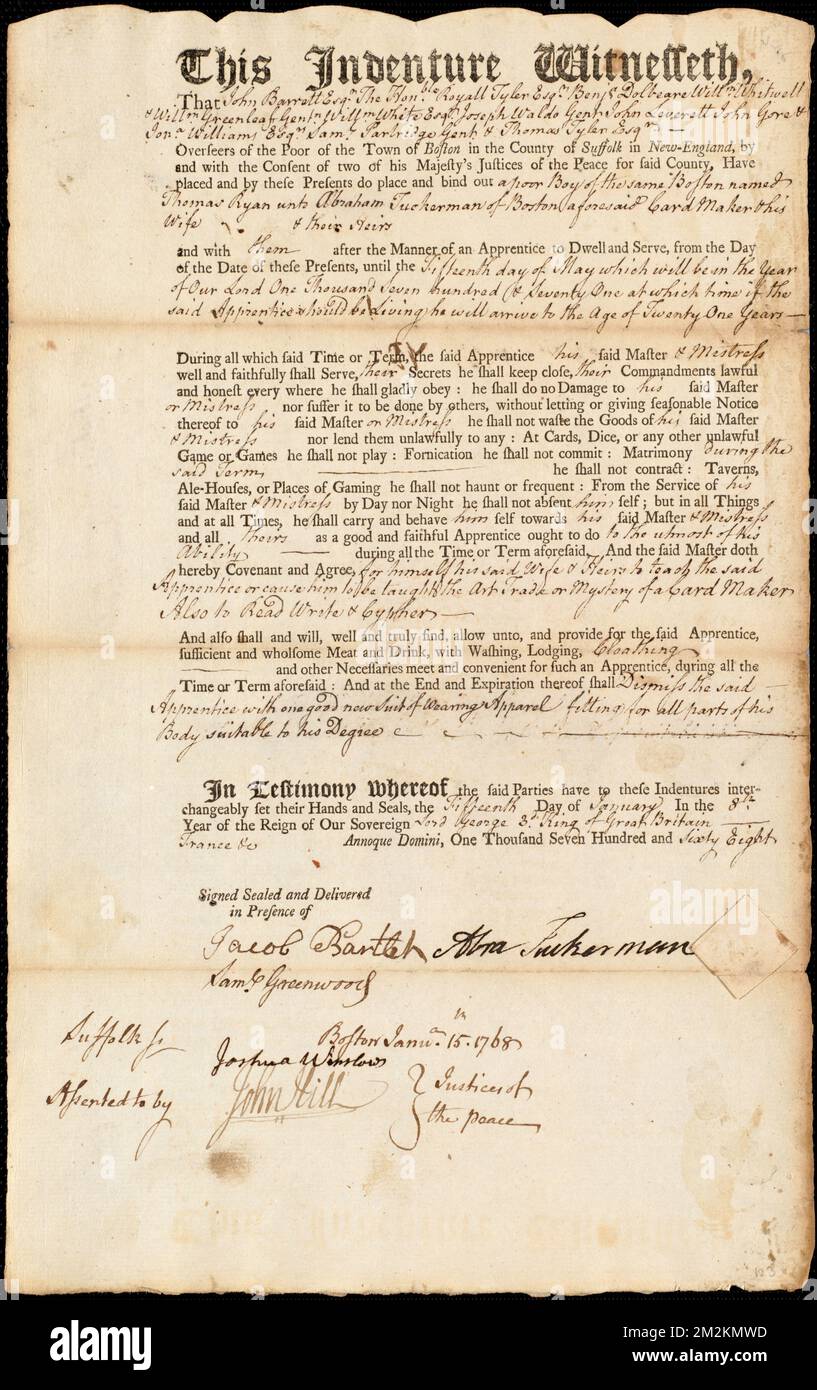 This Indenture Witnesseth,
That John Barrett Esqr. The Honble. Royall Tyler Esqr. Benja. Dolbeare Willm. Whitwell
& Willm. Greenleaf Gentn. Willm. White Esqr. Joseph Waldo Gent. John Leverett John Gore &
Jona. Williams Esqrs. Saml. Partridge Gent. & Thomas Tyler Esqr. —
Overseers of the Poor of the Town of Boston in the County of Suffolk in New-England, by
and with the Consent of two of his Majesty's Justices of the Peace for said County, Have
placed and by these Presents do place and bind out a poor Boy of the same Boston named
Thomas Ryan unto Abraham Tuckerman of Boston aforesaid Card Maker & his
Wife & their Heirs
and with them after the Manner of an Apprentice to Dwell and Serve, from the Day
of the Date of these Presents, until the Fifteenth day of May which will be in the Year
of Our Lord One Thousand Seven hundred & Seventy One at which time if the
said Apprentice should be Living he will arrive to the Age of Twenty One Years —
During all which said Time or Term, the said Apprentice his said Master & Mistress
well and faithfully shall Serve, their Secrets he shall keep close, their Commandments lawful
and honest every where he shall gladly obey : he shall do no Damage to his said Master
or Mistress nor suffer it to be done by others, without letting or giving seasonable Notice
thereof to his said Master or Mistress he shall not waste the Goods of his said Master
& Mistress nor lend them unlawfully to any : At Cards, Dice, or any other unlawful
Game or Games he shall not play : Fornication he shall not commit : Matrimony during the
said Term — he shall not contract : Taverns,
Ale-Houses, or Places of Gaming he shall not haunt or frequent : From the Service of his
said Master & Mistress by Day nor Night he shall not absent him self ; but in all Things
and at all Times, he shall carry and behave him self towards his said Master & Mistress
and all theirs as a good and faithful Apprentice ought to do to the utmost of his
Ability — during all the Time or Term aforesaid. And the said Master doth
hereby Covenant and Agree, for himself his said Wife & Heirs to teach the said
Apprentice or cause him to be taught the Art Trade or Mystery of a Card Maker
Also to Read Write & Cypher —
And also shall and will, well and truly find, allow unto, and provide for the said Apprentice,
sufficient and wholsome Meat and Drink, with Washing, Lodging, Cloathing
— and other Necessaries meet and convenient for such an Apprentice, during all the
Time or Term aforesaid : And at the End and Expiration thereof shall Dismiss the said —
Apprentice with one good new Suit of Wearing Apparel fitting for all parts of his
Body suitable to his Degree
In Testimony whereof the said Parties have to these Indentures inter-
changeably set their Hands and Seals, the Fifteenth Day of January In the 8th.
Year of the Reign of Our Sovereign Lord George 3d. King of Great Britain —
France &c Annoque Domini, One Thousand Seven Hundred and Sixty Eight
Signed Sealed and Delivered
in Presence of
Jacob Bartlet Abra Tuckerman
Saml. Greenwood
Suffolk ss Boston Janua. 15th. 1768
Joshua Winslow
Assented to by John Hill } Justices of
the peace
alamy
Image ID: 2M2KMWD
www.alamy.com